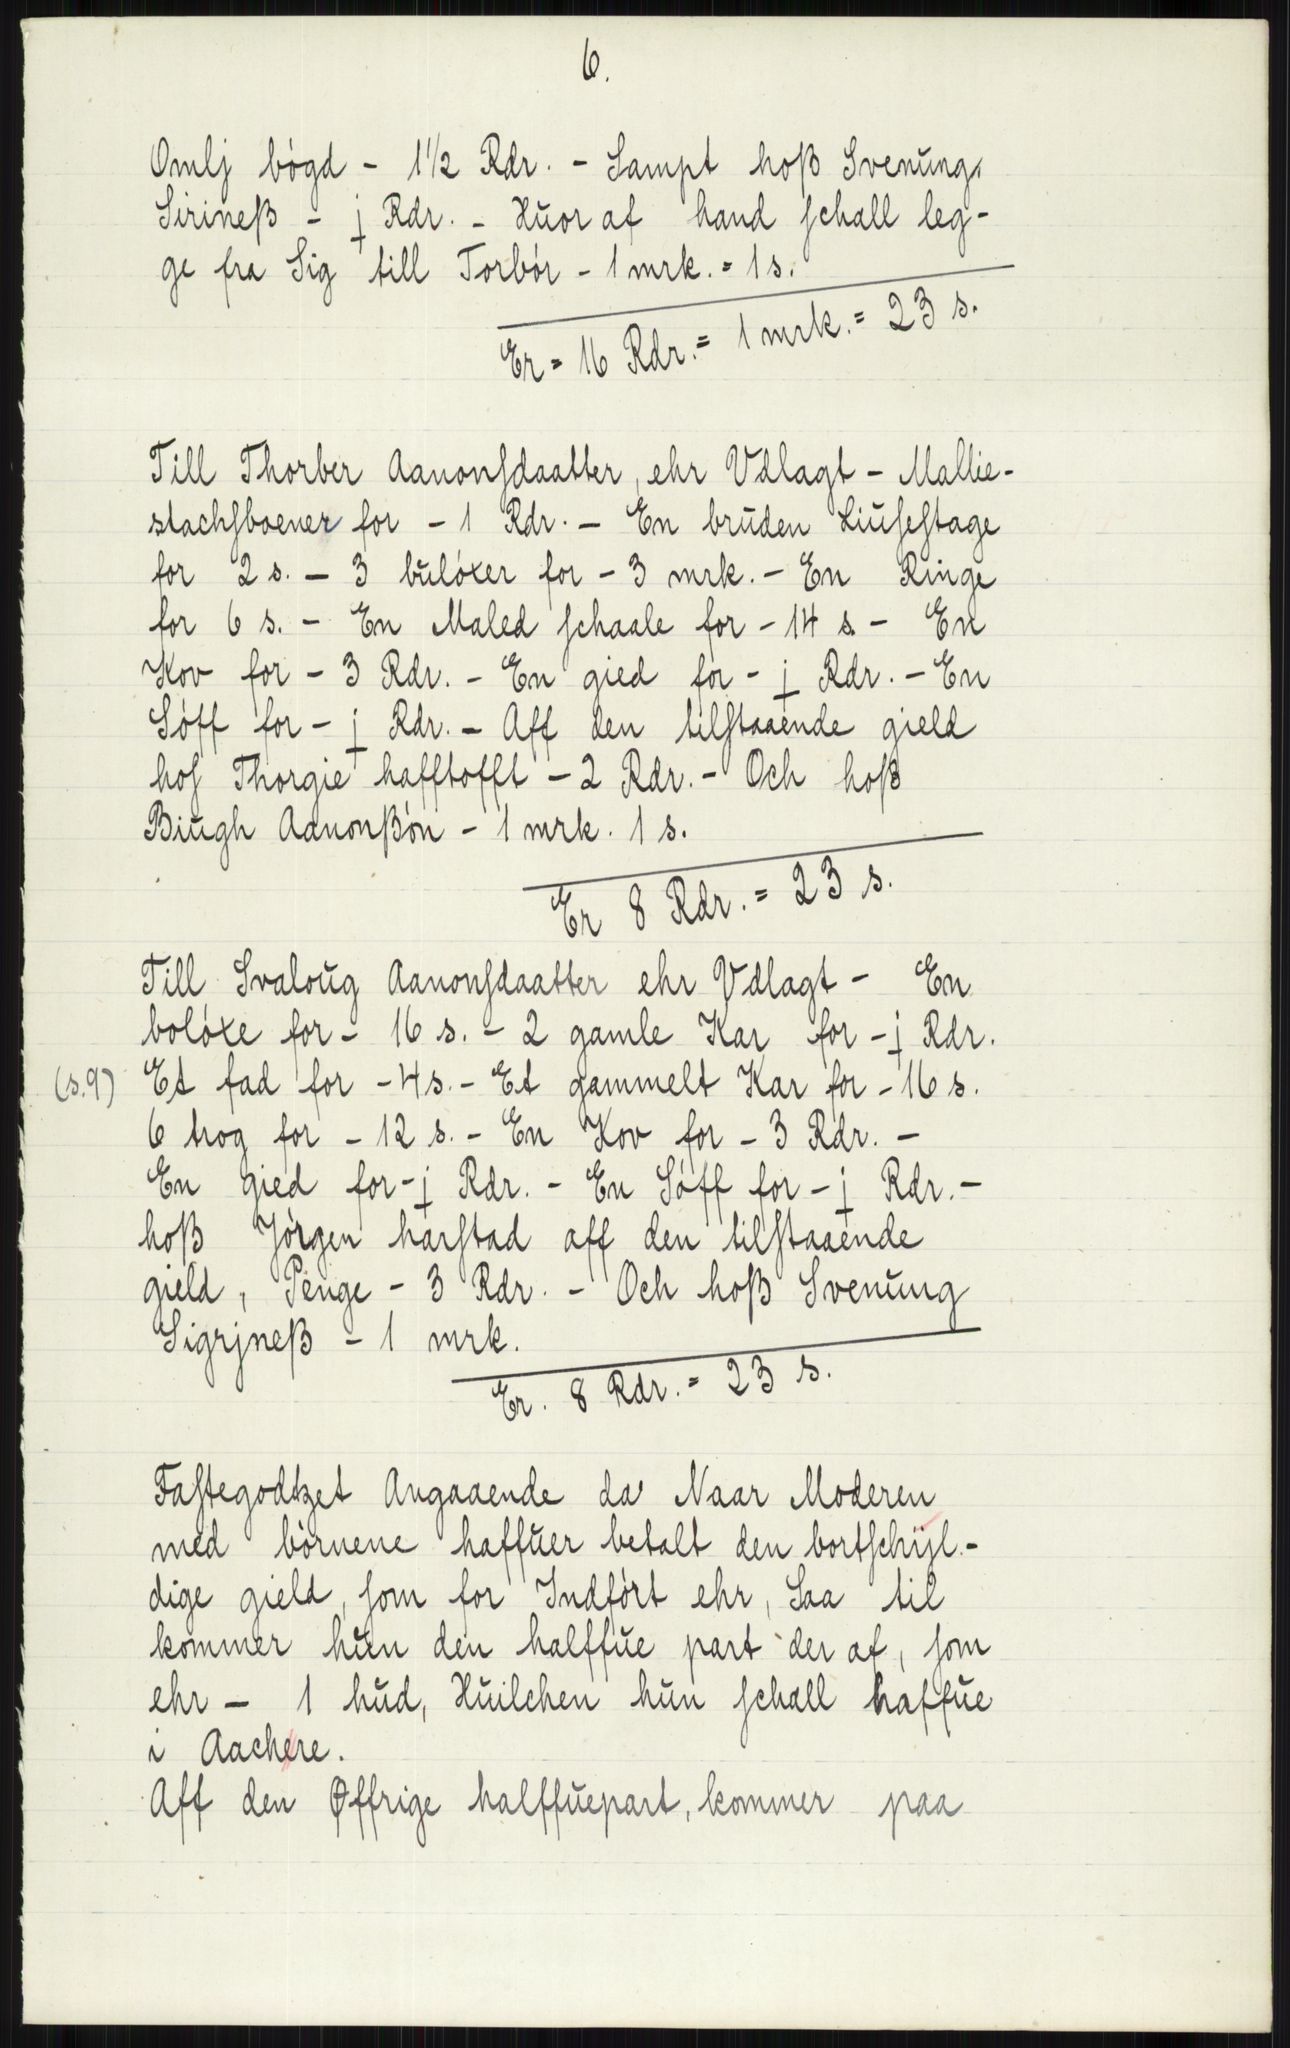 6.
Omlj bógd - 1½ Rdr. - Sampt hoß Svenung
Sirineß - j Rdr. - Huor af hand schall leg-
ge fra Sig till Torbór - 1 mrk. = 1 s.
Er = 16 Rdr. = 1 mrk. = 23 s.
Till Thorber Aanonsdaatter, ehr Vdlagt - Mallie-
stachsboener for - 1 Rdr. - En bruden Liusestage
for 2 s. - 3 bulóxer for - 3 mrk. - En Ringe
for 6 s. - En Maled schaale for - 14 s. - En
Kov for - 3 Rdr. - En gied for - j Rdr. - En
Sóff for - j Rdr. - Aff den tilstaaende gield
hos Thorgie hafftofft - 2 Rdr. - Och hoß
Biugh Aanonßón - 1 mrk. 1 s.
Er 8 Rdr. = 23 s.
Till Svaloug Aanonsdaatter ehr Vdlagt - En
bolóxe for - 16 s. - 2 gamle Kar for - j Rdr.
(s.9) Et fad for - 4 s. - Et gammelt Kar for - 16 s.
6 trog for - 12 s. - En Kov for - 3 Rdr. -
En gied for - j Rdr. - En Sóff for - j Rdr. -
hoß Jórgen harstad aff den tilstaaende
gield, Penge - 3 Rdr. - Och hoß Svenung
Sigrjneß - 1 mrk.
Er. 8 Rdr. = 23 s.
Fastegodtzet Angaaende da Naar Moderen
med bórnene haffuer betalt den bortschyl-
dige gield, som for Indfórt ehr, Saa til
kommer hun den halffue part der af, som
ehr - 1 hud, Huilchen hun schall haffue
i Aachere.
Aff den Øffrige halffuepart, kommer paa